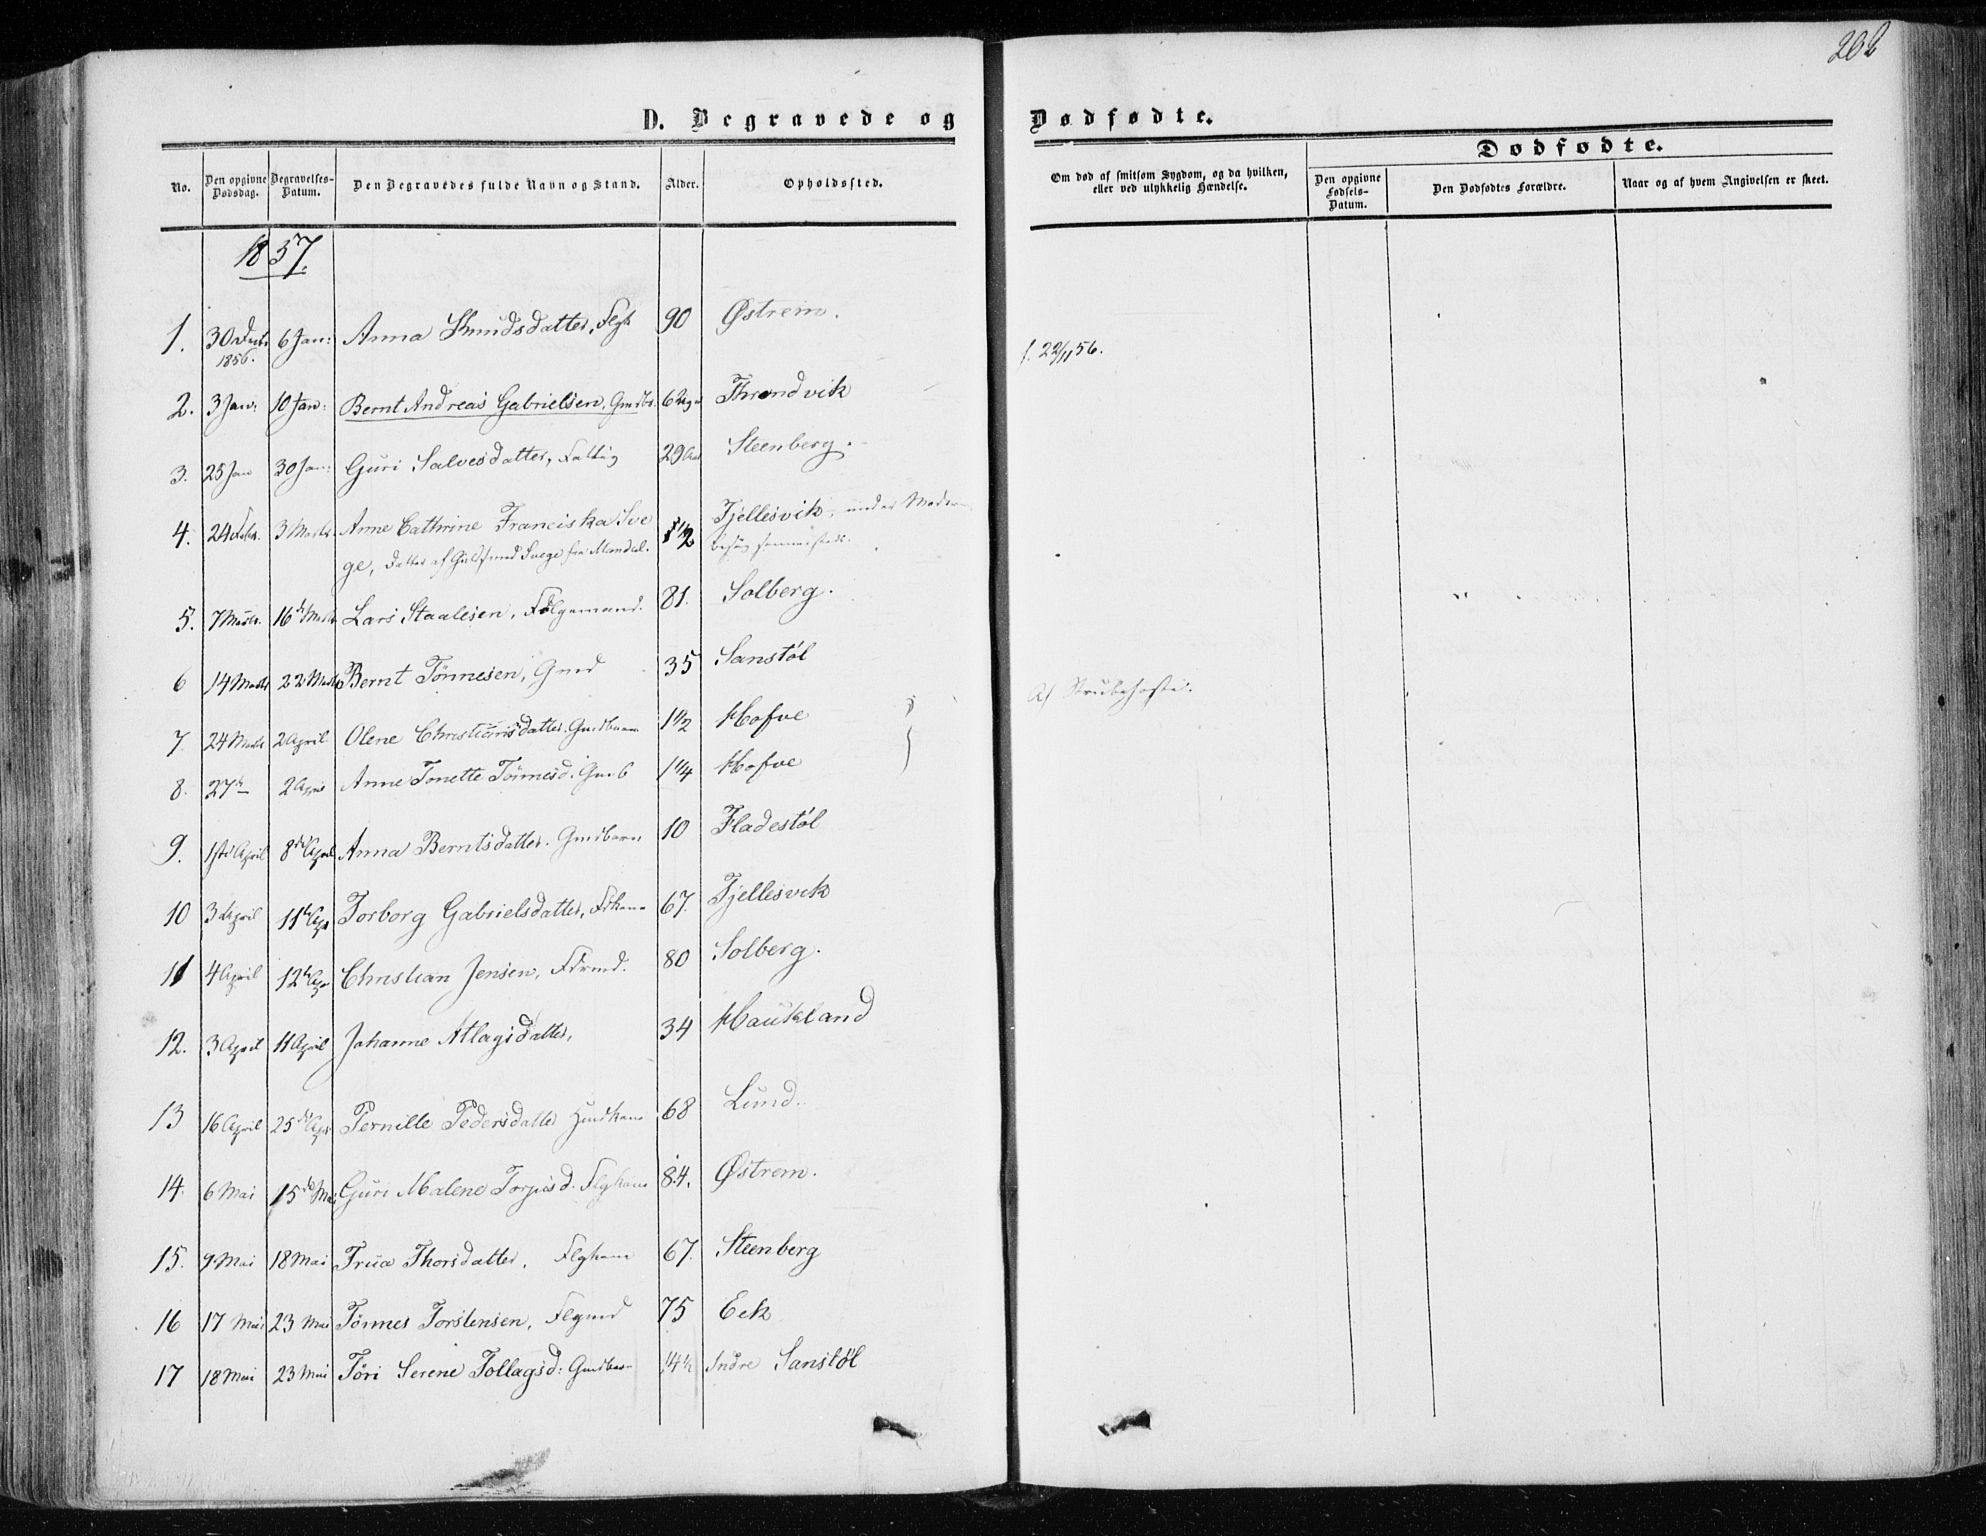 202
D. Begravede og Dødfødte.
Dødfødte.
No. Den opgivne Dødsdag. Begravelses-Datum. Den Begravedes fulde Navn og Stand. Alder. Opholdssted. Om død af smitsom Sygdom, og da hvilken, eller ved ulykkelig Hændelse. Den opgivne Fødsels-Datum. Den Dødfødtes Forældre. Naar og af hvem Angivelsen er skeet.
1857.
1. 30 Decbr 1856. 6 Jan: Anna Knudsdatter, Flgk 90 Østrem.
2. 3 Jan: 10 Jan: Bernt Andreas Gabrielsen, Gmdb. 6 Uger Throndvik f. 22/11 56.
3. 25 Jan 30 Jan: Guri Salvesdatter, Fattig 29 Aar Steenberg.
4. 24 Febr. 3 Marts. Anne Cathrine Franciska Sve 1/2 Tjellesvik, under Moderens
ge, Datter af Guldsmed Svege fra Mandal. besøg sammesteds.
5. 7 Marts. 16de Marts Lars Staalesen, Følgemand. 81. Solberg.
6 14 Marts 22 Marts Bernt Tönnesen, Gmd 35 Sanstøl
7. 24 Marts 2 April Olene Christiansdatter, Gmdbarn 1 1/2 Hofve Af Strubehoste.
8. 27de 2 April Anne Tonette Tönnesd. Gmb 1 1/4 Hofve
9. 1ste April 8de April Anna Berntsdatter. Gmdbarn 10 Fladestøl
10 3 April 11te Apr Torborg Gabrielsdatter, Fdkone 67. Tjellesvik
11 4 April 12te Apr Christian Jensen, Fdrmd. 80 Solberg.
12. 3 April 11 April Johanne Atlagsdatter, 34 Haukland
13 16 April 25de Apr Pernille Pedersdatter Husmkone 68 Lund.
14. 6 Mai 15de Mai Guri Malene Torjusd. Flgkone 84. Østrem.
15. 9 Mai 18 Mai Trua Thorsdatter, Flgkone 67. Steenberg
16 17 Mai 23 Mai Tönnes Torstensen, Flgmd 75 Eek
17 18 Mai 23 Mai Töri Serene Tollagsd: Gmdbarn 14 1/2 Indre Sanstøl